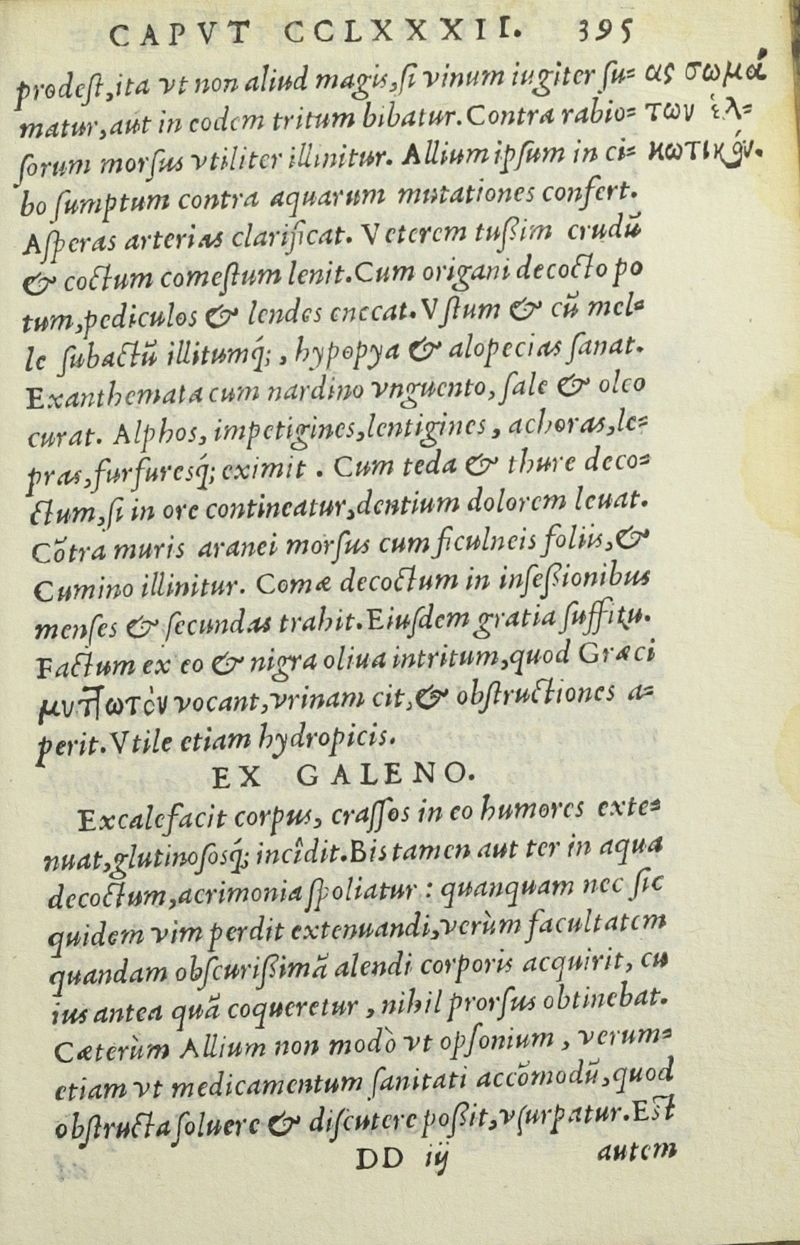 CAPVT CCLXXXII. 395
prodeſt, ita vt non aliud magis, ſi vinum iugiter ſu=
matur, aut in eodem tritum bibatur. Contra rabio=
ſorum morſus vtiliter illinitur. Allium ipſum in ci=
bo ſumptum contra aquarum mutationes confert.
Aſperas arterias clarificat. Veterem tußim crudū
& coctum comeſtum lenit. Cum origani decocto po
tum, pediculos & lendes enecat. Vſtum & cū mel=
le ſubactū illitumq́;, hypopya & alopecias ſanat.
Exanthemata cum nardino vnguento, ſale & oleo
curat. Alphos, impetigines, lentigines, achoras, le=
pras, furfuresq́; eximit. Cum teda & thure deco=
ctum, ſi in ore contineatur, dentium dolorem leuat.
Cōtra muris aranei morſus cum ficulneis foliis, &
Cumino illinitur. Comæ decoctum in inſeßionibus
menſes & ſecundas trahit. Eiuſdem gratia ſuffitu.
Factum ex eo & nigra oliua intritum, quod Græci
μυττωτὸν vocant, vrinam cit, & obſtructiones a=
perit. Vtile etiam hydropicis.
EX GALENO.
Excalefacit corpus, craſſos in eo humores exte=
nuat, glutinoſosq́; incîdit. Bis tamen aut ter in aqua
decoctum, acrimonia ſpoliatur: quanquam nec ſic
quidem vim perdit extenuandi, verùm facultatem
quandam obſcurißimā alendi corporis acquirit, cu
ius antea quā coqueretur, nihil prorſus obtinebat.
Cæterùm Allium non modò vt opſonium, verum=
etiam vt medicamentum ſanitati accōmodū, quod
obſtructa ſoluere & diſcutere poßit, vſurpatur. Eſt
DD iij autem
ας σωμά
των ἑλ=
κωτικόν.